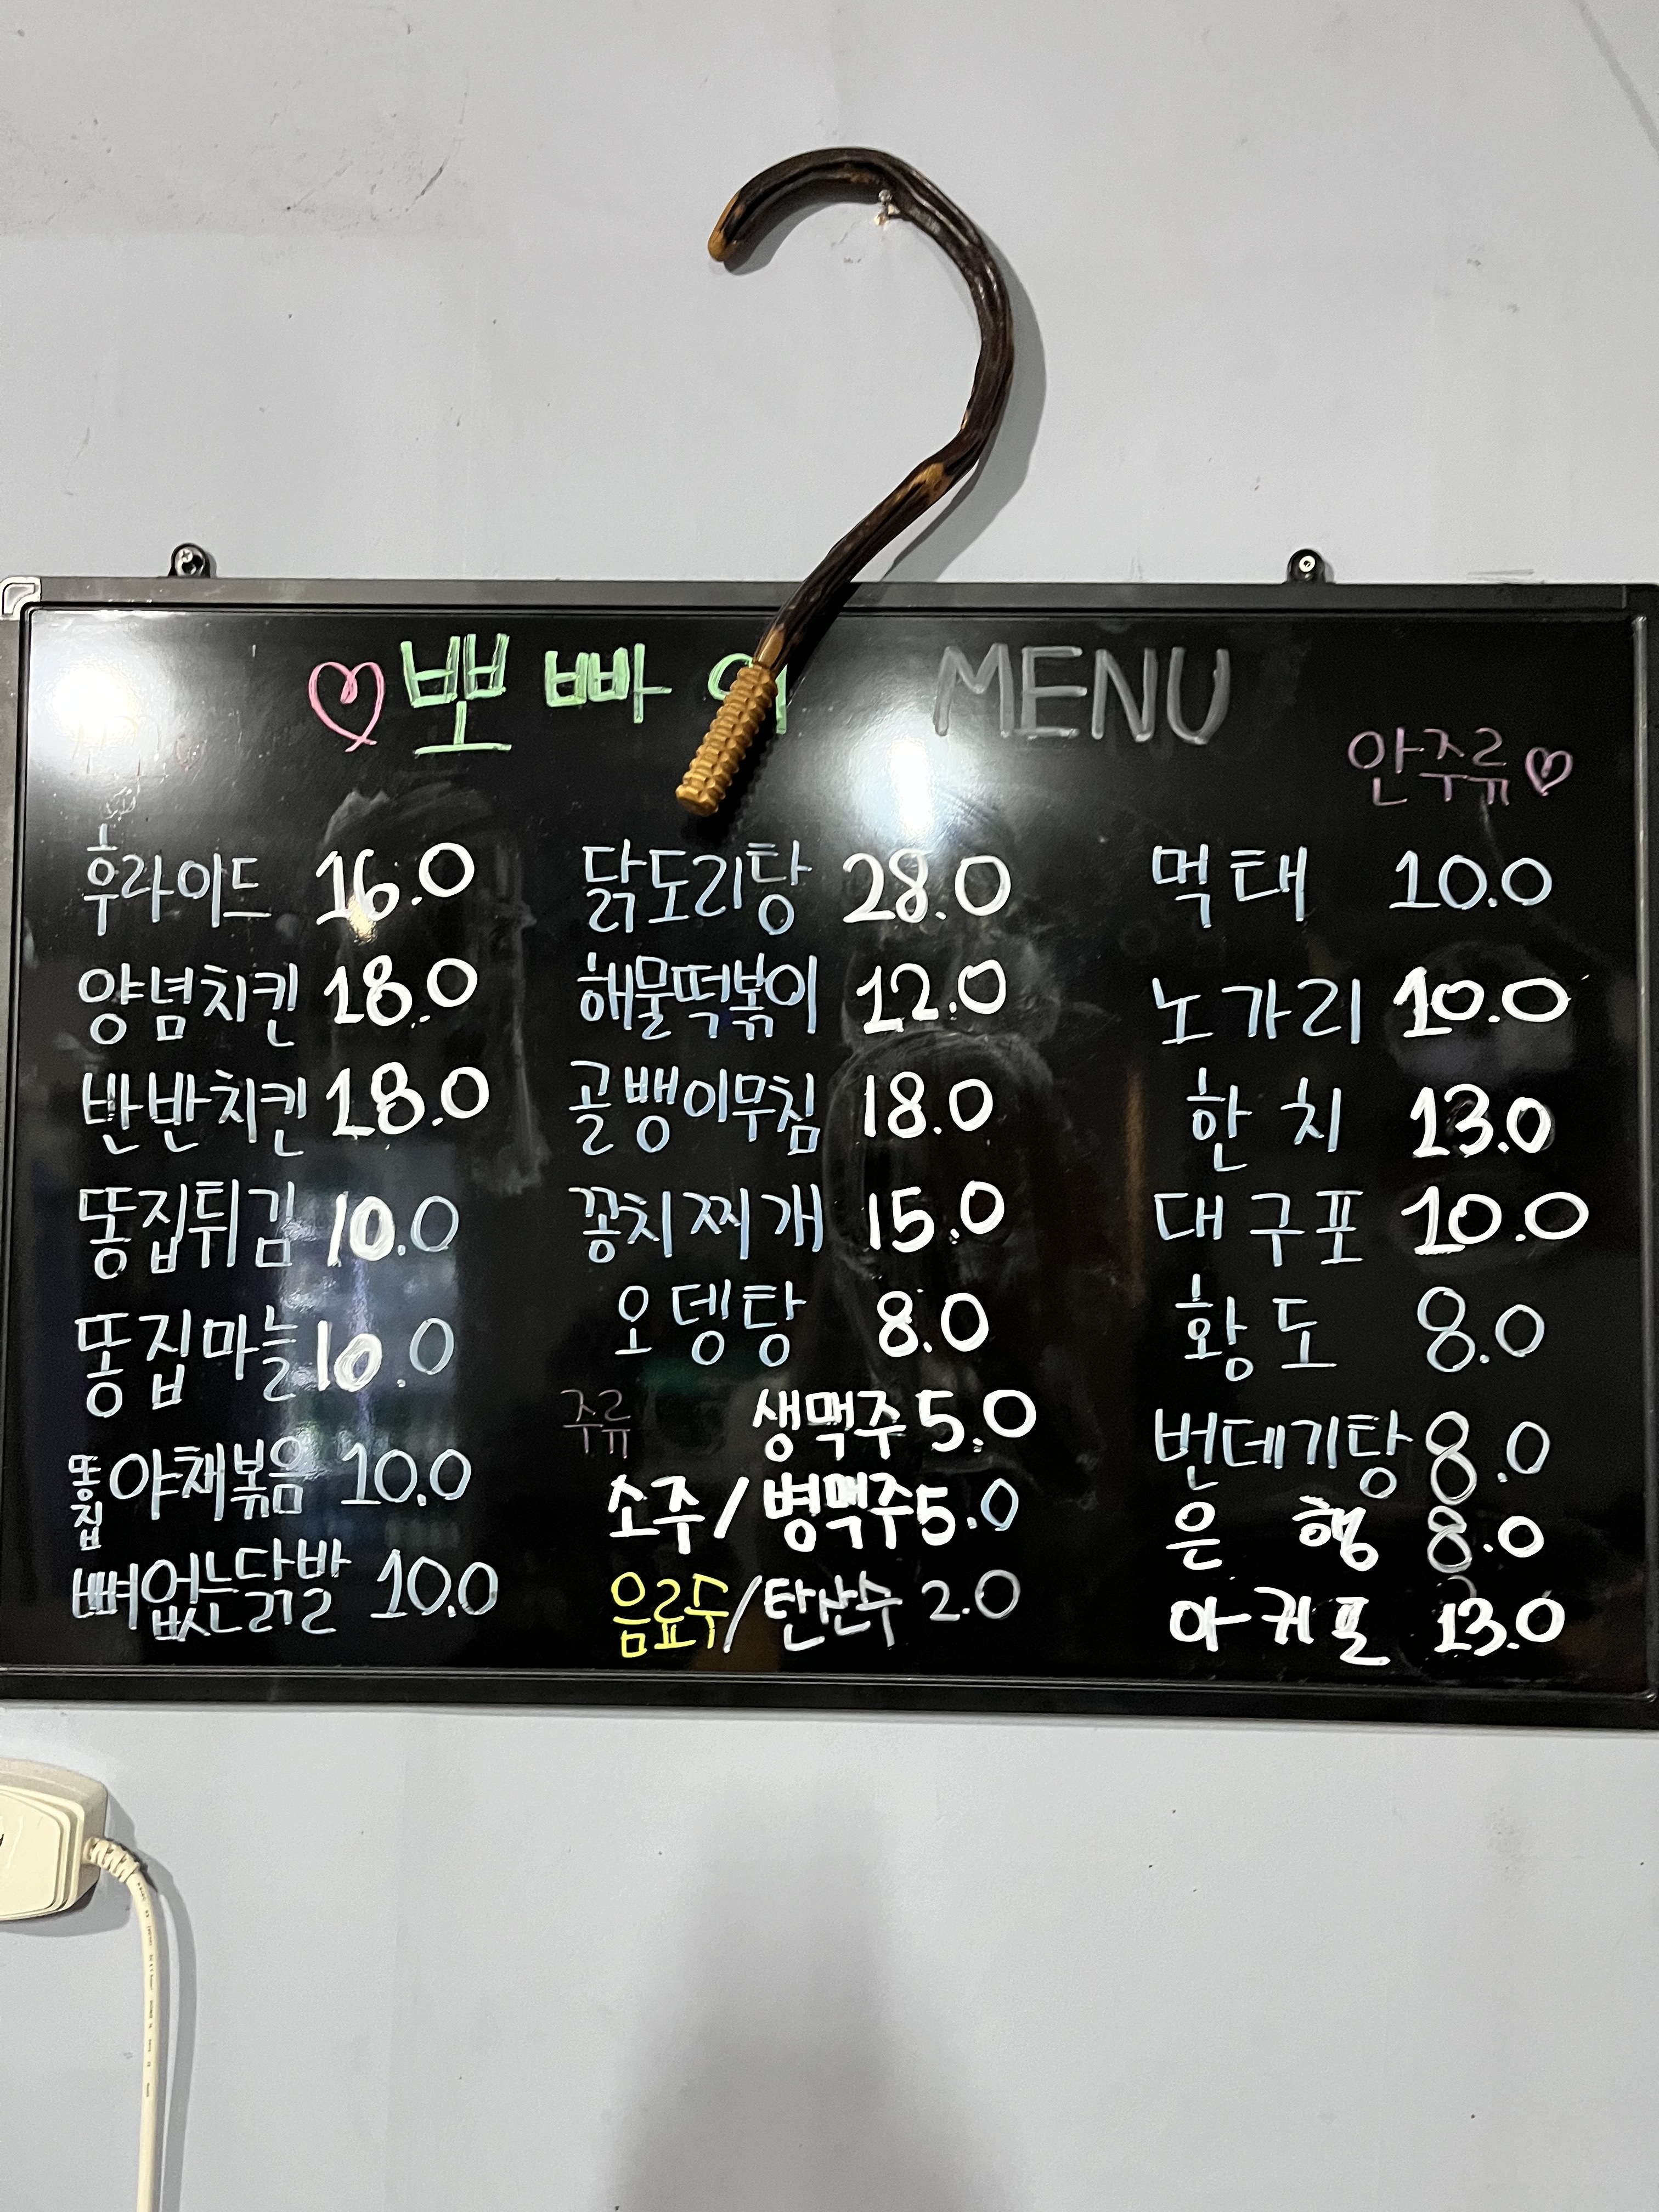 ♡ 뽀빠이 MENU
후라이드 16.0
양념치킨 18.0
반반치킨 18.0
똥집튀김 10.0
똥집마늘 10.0
똥집 야채볶음 10.0
뼈없는닭발 10.0
닭도리탕 28.0
해물떡볶이 12.0
골뱅이무침 18.0
꽁치찌개 15.0
오뎅탕 8.0
주류 생맥주 5.0
소주/병맥주 5.0
음료수/탄산수 2.0
안주류♡
먹태 10.0
노가리 10.0
한치 13.0
대구포 10.0
황도 8.0
번데기탕 8.0
은행 8.0
아귀포 13.0